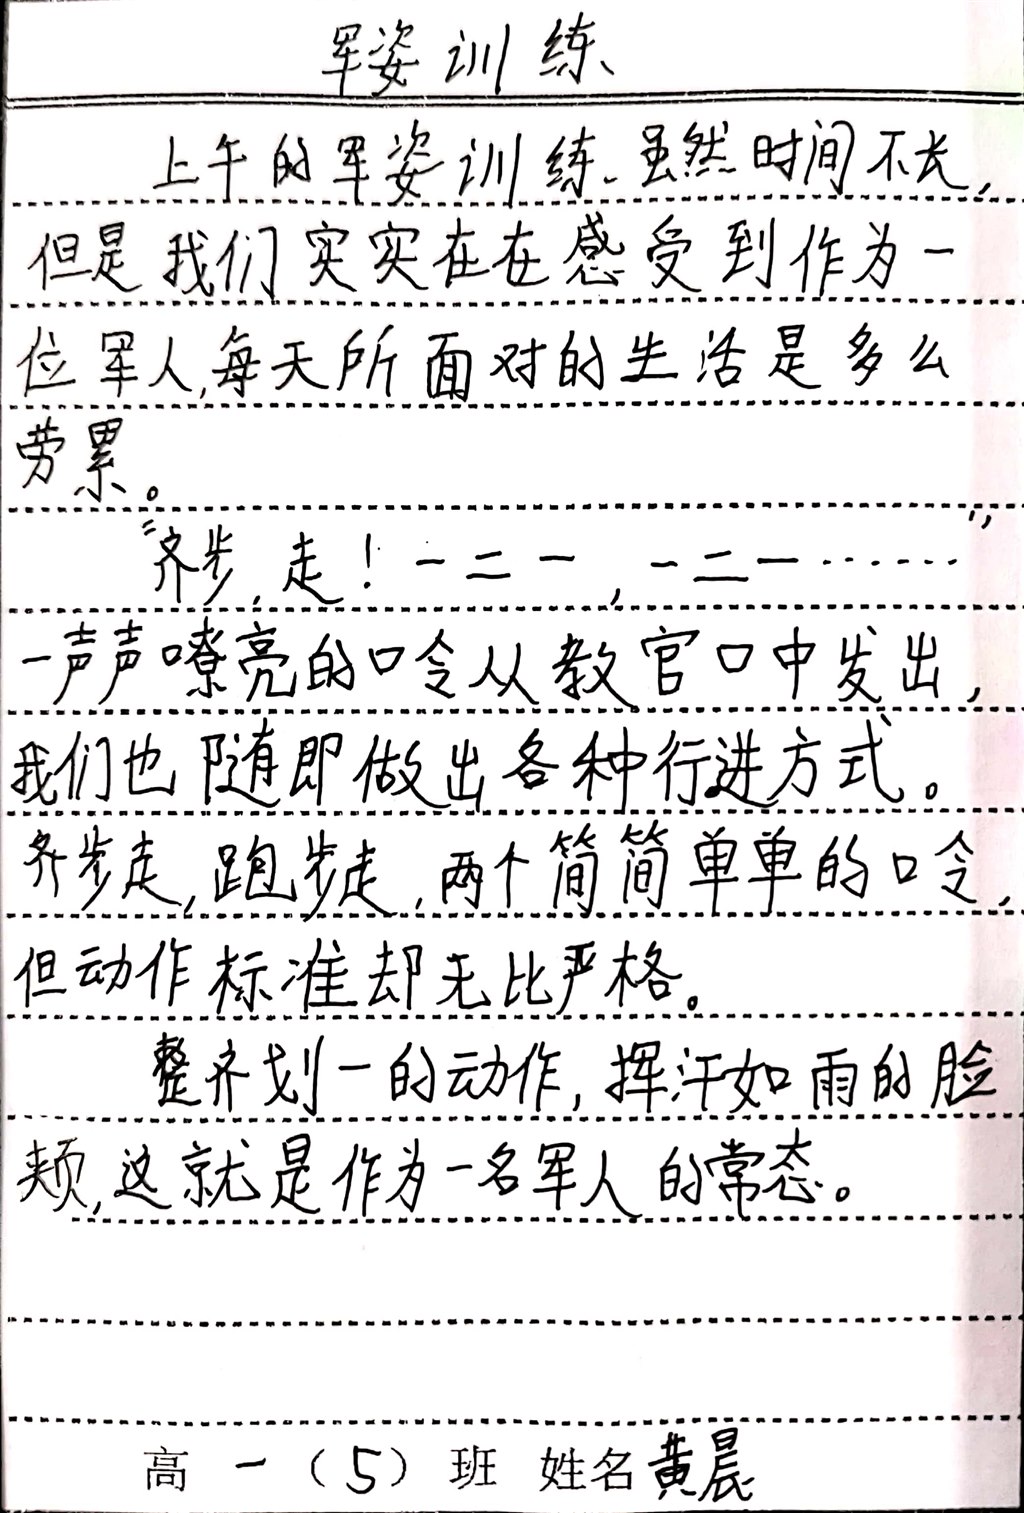 军姿训练
上午的军姿训练、虽然时间不长,
但是我们实实在在感受到作为一
位军人,每天所面对的生活是多么
劳累。
“齐步,走!一二一,一二一……”
一声声嘹亮的口令从教官口中发出,
我们也随即做出各种行进方式。
齐步走,跑步走,两个简简单单的口令,
但动作标准却无比严格。
整齐划一的动作,挥汗如雨的脸
颊,这就是作为一名军人的常态。
高一(5)班 姓名黄晨